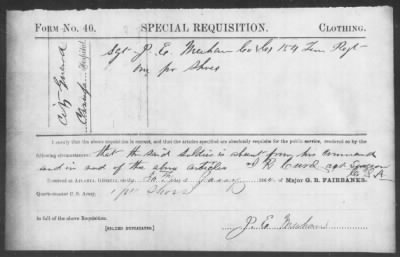 FORM NO. 40. SPECIAL REQUISITION. CLOTHING.
City Guard
Camp Hospital
Sgt J. E. Meehan Co 154 Tenn Regt
One pr Shoes
I certify that the above requisition is correct, and that the articles specified are absolutely requisite for the public service, rendered so by the
following circumstances: that the said soldier is absent from his command
and in need of the above articles
RECEIVED AT ATLANTA, GEORGIA, of Major G. R. FAIRBANKS,
Quartermaster C. S. Army, 1 pr Shoes
in full of the above Requisition.
J. E. Meehan
[SIGNED DUPLICATES.]